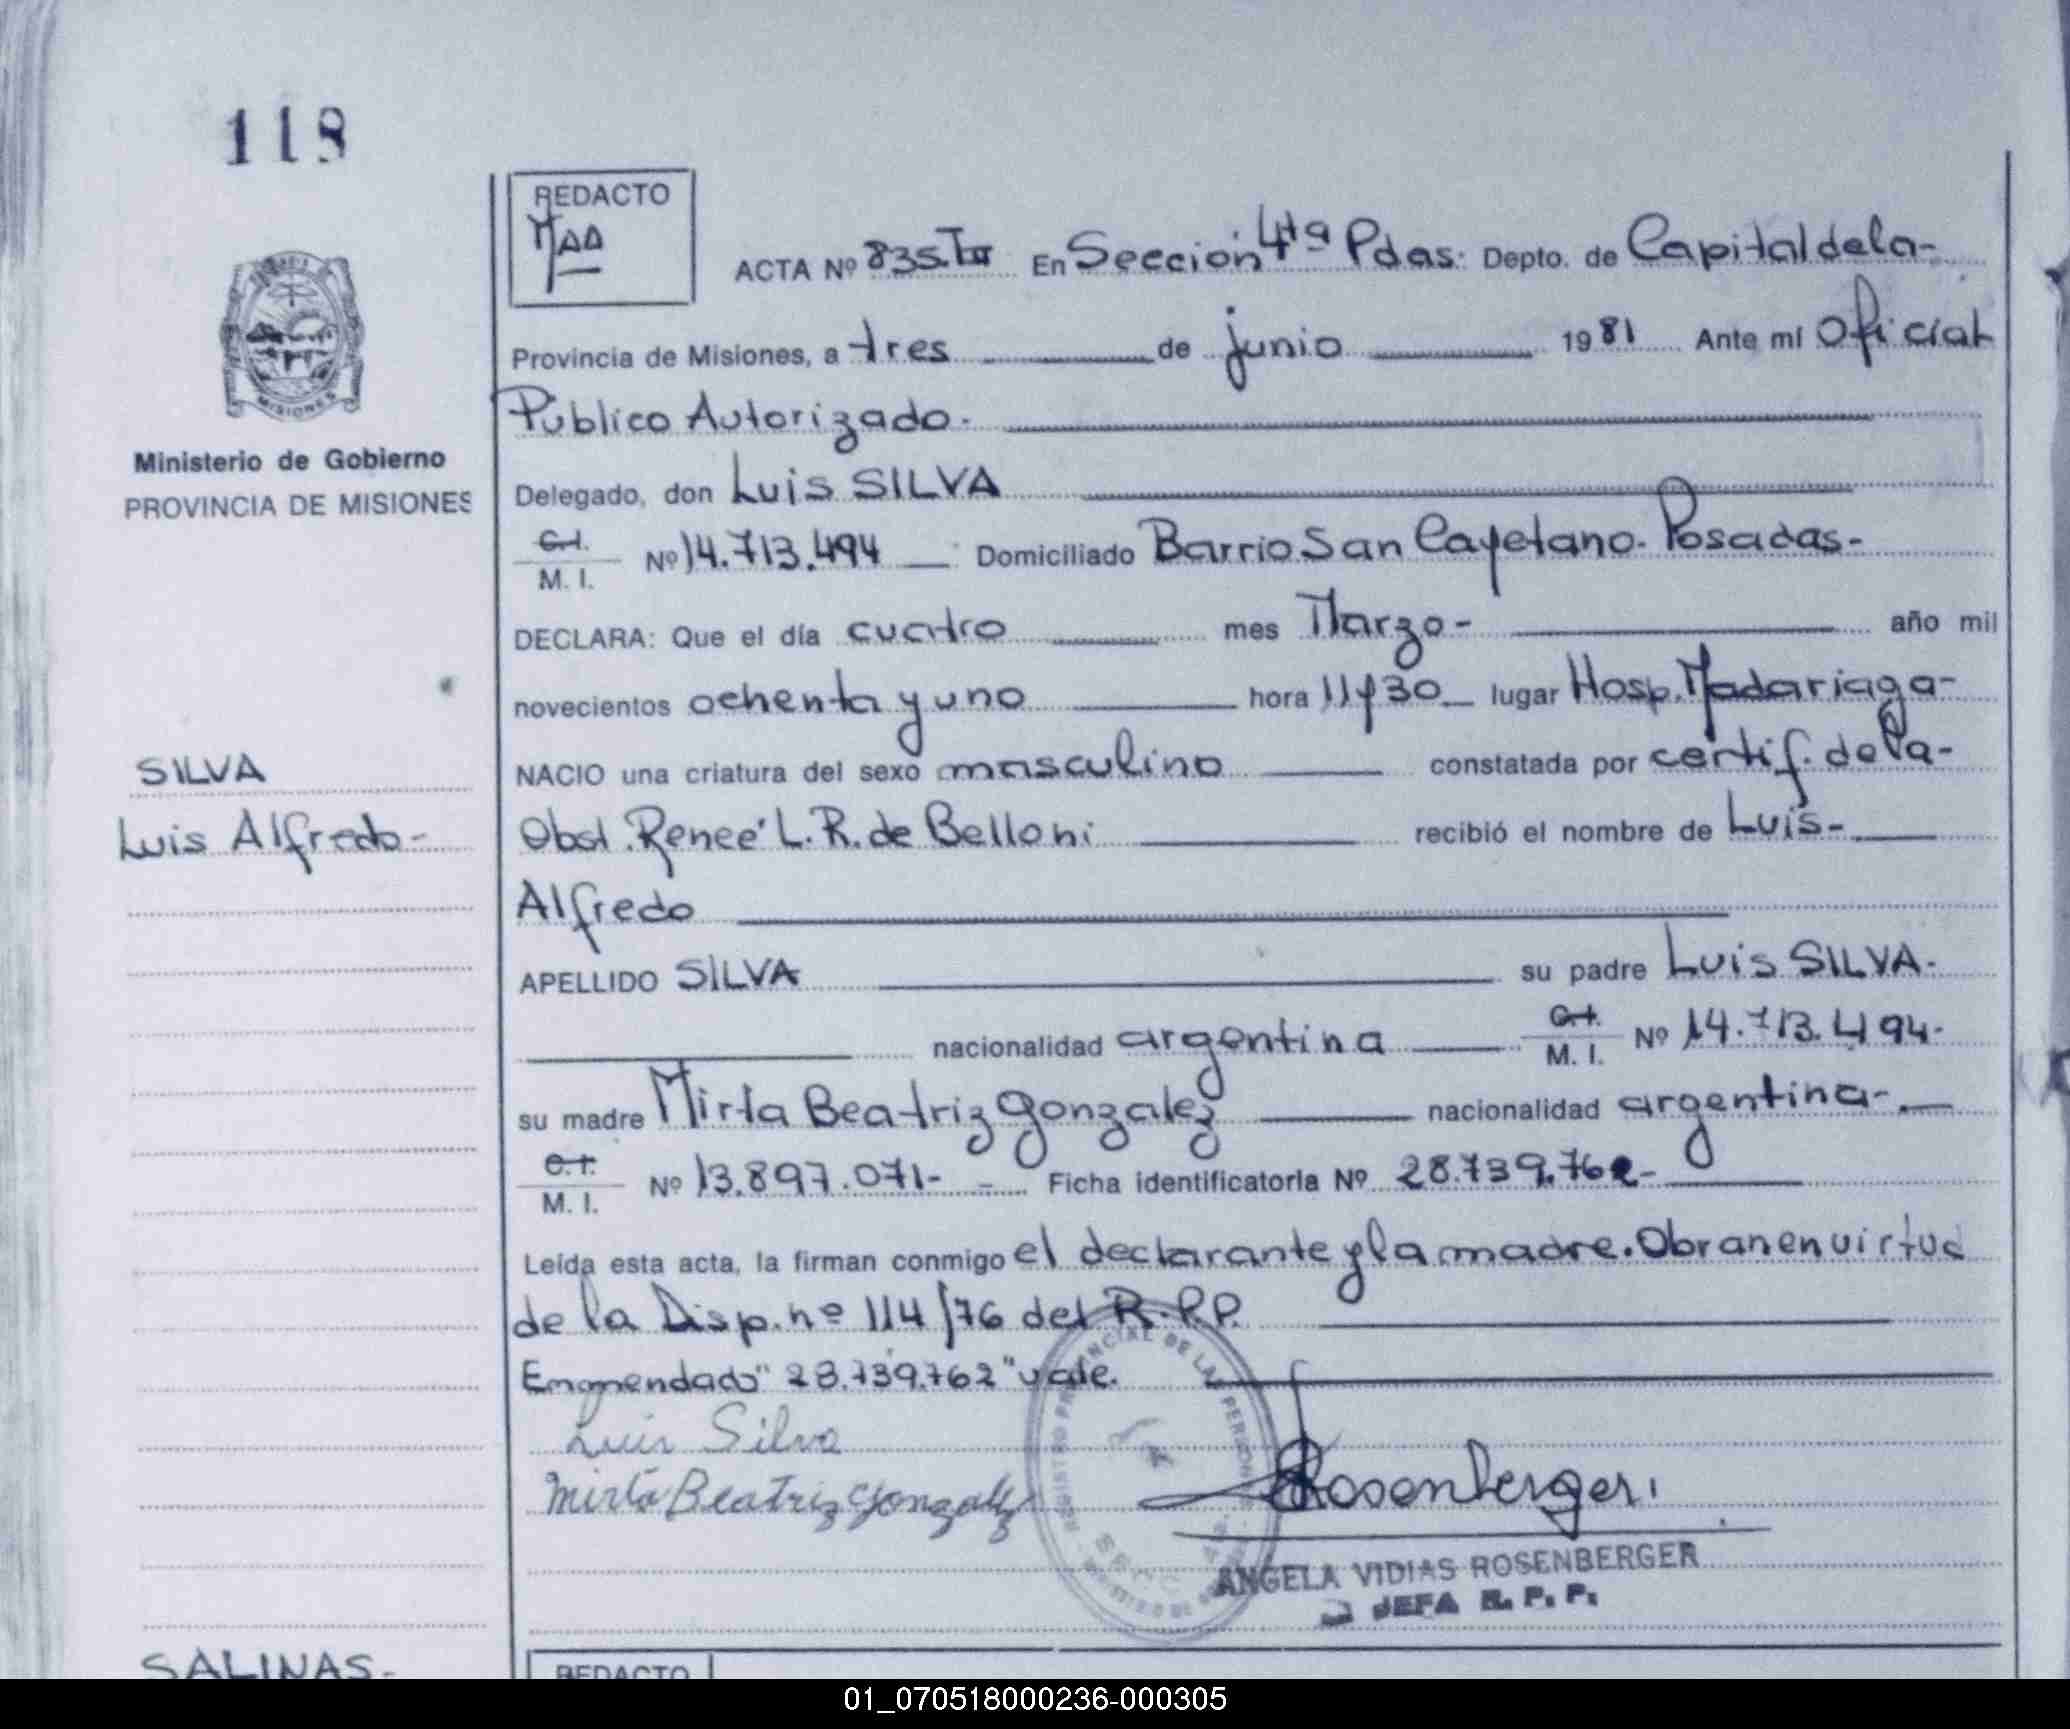 118
REDACTO
MAA
ACTA Nº 835.TIII En Sección 4ta Pdas. Depto. de Capital de la-
Provincia de Misiones, a tres de junio 1981 Ante mí Oficial
Público Autorizado.
Ministerio de Gobierno
PROVINCIA DE MISIONES
Delegado, don Luis SILVA
C.I. M. I. Nº 14.713.494 Domiciliado Barrio San Cayetano. Posadas-
DECLARA: Que el día cuatro mes Marzo- año mil
novecientos ochenta y uno hora 11y30 lugar Hosp. Madariaga-
SILVA
Luis Alfredo-
NACIO una criatura del sexo masculino constatada por certif. de la-
Obst. Reneé L. R. de Belloni recibió el nombre de Luis-
Alfredo
APELLIDO SILVA su padre Luis SILVA.
nacionalidad argentina C.I. M. I. Nº 14.713.494-
su madre Mirta Beatriz Gonzalez nacionalidad argentina-
C.I. M. I. Nº 13.897.071- Ficha identificatoria Nº 28.739.762-
Leída esta acta, la firman conmigo el declarante y la madre. Obran en virtud
de la Disp. nº 114/76 del R.P.P.
Enmendado "28.739.762" vale.
Luis Silva
Mirta Beatriz Gonzalez
Rosenberger
REGISTRO PROVINCIAL DE LAS PERSONAS
ANGELA VIDIAS ROSENBERGER
JEFA R. P. P.
SALINAS-
REDACTO
01_070518000236-000305